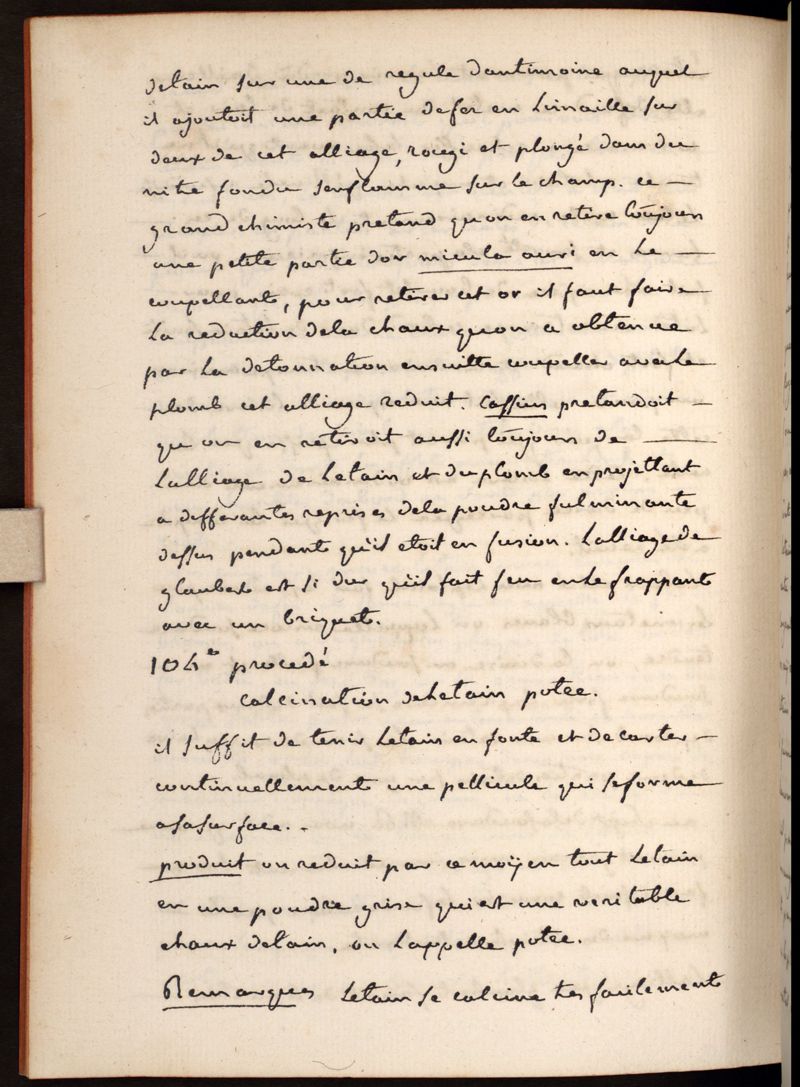 detain sur une de regule dantimoine auquel
il ajoutoit une partie defer en Limaille sur
deux de cet alliage, rougi et plongé dans du
nitre fondu senflamme sur le champ. ce —
grand chimiste pretend quon en retire toujours
une petite partie dor micula auri en Le —
coupellant, pour retirer cet or il faut faire
La reduction dela chaux quon a obtenue
par La detonnation ensuitte coupeller avec Le
plomb cet alliage reduit. Cassius pretandoit —
qu on en retiroit aussi toujours de —
Lalliage de Letain et du plomb en projettant
a differantes reprises dela poudre fulminante
dessus pendant qu'il etoit en fusion. Lalliage de
glaubert est si dur qu'il fait feu en Le frappant
avec un briquet.
104e procedé
Calcination de Letain potee.
il suffit de tenir Letain en fonte et decarter —
continuellement une pellicule qui se forme
a sa surface. -
produit on reduit par ce moÿen tout Letain
en une poudre grise qui est une veritable
chaux detain, on Lappelle potee.
Remarques Letain se calcine tres facilement